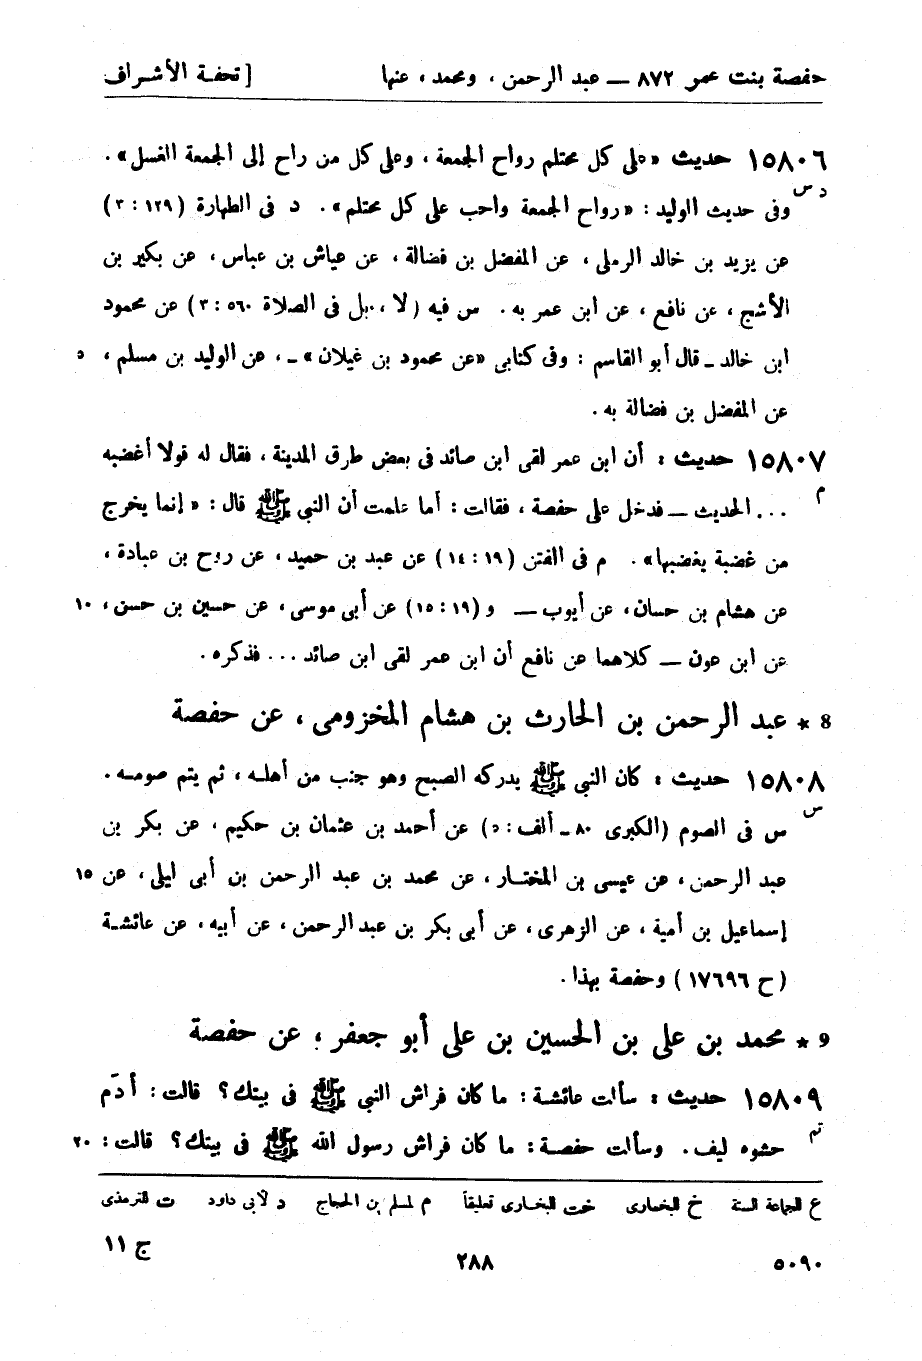 حفصة بنت عمر ٨٧٢ — عبد الرحمن ، ومحمد ، عنها [ تحفـة الأشـراف
١٥٨٠٦ حديث « على كل محتلم رواح الجمعة ، وعلى كل من راح إلى الجمعة الغسل » .
د س
وفى حديث الوليد : « رواح الجمعة واجب على كل محتلم » . د فى الطهارة ( ١٢٩ : ٣ )
عن يزيد بن خالد الرملى ، عن المفضل بن فضالة ، عن عياش بن عباس ، عن بكير بن
الأشج ، عن نافع ، عن ابن عمر به . س فيه ( لا ، بل فى الصلاة ٥٦٠ : ٣ ) عن محمود
ابن خالد ـ قال أبو القاسم : وفى كتابى « عن محمود بن غيلان » ـ ، عن الوليد بن مسلم ، ٥
عن المفضل بن فضالة به .
١٥٨٠٧ حديث : أن ابن عمر لقى ابن صائد فى بعض طرق المدينة ، فقال له قولا أغضبه
م
... الحديث — فدخل على حفصة ، فقالت : أما علمت أن النبي ﷺ قال : « إنما يخرج
من غضبة يغضبها » . م فى الفتن ( ١٩ : ١٤ ) عن عبد بن حميد ، عن روح بن عبادة ،
عن هشام بن حسان ، عن أيوب — و ( ١٩ : ١٥ ) عن أبى موسى ، عن حسين بن حسن ، ١٠
عن ابن عون — كلاهما عن نافع أن ابن عمر لقى ابن صائد ... فذكره .
8 * عبد الرحمن بن الحارث بن هشام المخزومى ، عن حفصة
١٥٨٠٨ حديث : كان النبي ﷺ يدركه الصبح وهو جنب من أهلـه ، ثم يتم صومـه .
س
س فى الصوم ( الكبرى ٨٠ ـ ألف : ٥ ) عن أحمد بن عثمان بن حكيم ، عن بكر بن
عبد الرحمن ، عن عيسى بن المختـار ، عن محمد بن عبد الرحمن بن أبى ليلى ، عن ١٥
إسماعيل بن أمية ، عن الزهرى ، عن أبى بكر بن عبد الرحمن ، عن أبيه ، عن عائشـة
( ح ١٧٦٩٦ ) وحفصة بهذا .
9 * محمد بن على بن الحسين بن على أبو جعفر ، عن حفصة
١٥٨٠٩ حديث : سألت عائشـة : ما كان فراش النبي ﷺ فى بيتك ؟ قالت : أدَم
تم
حشوه ليف . وسألت حفصـة : ما كان فراش رسول الله ﷺ فى بيتك ؟ قالت : ٢٠
ع للجماعة الستة خ للبخارى خت للبخارى تعليقاً م لمسلم بن الحجاج د لأبى داود ت للترمذى
٥٠٩٠ ٢٨٨ ج ١١